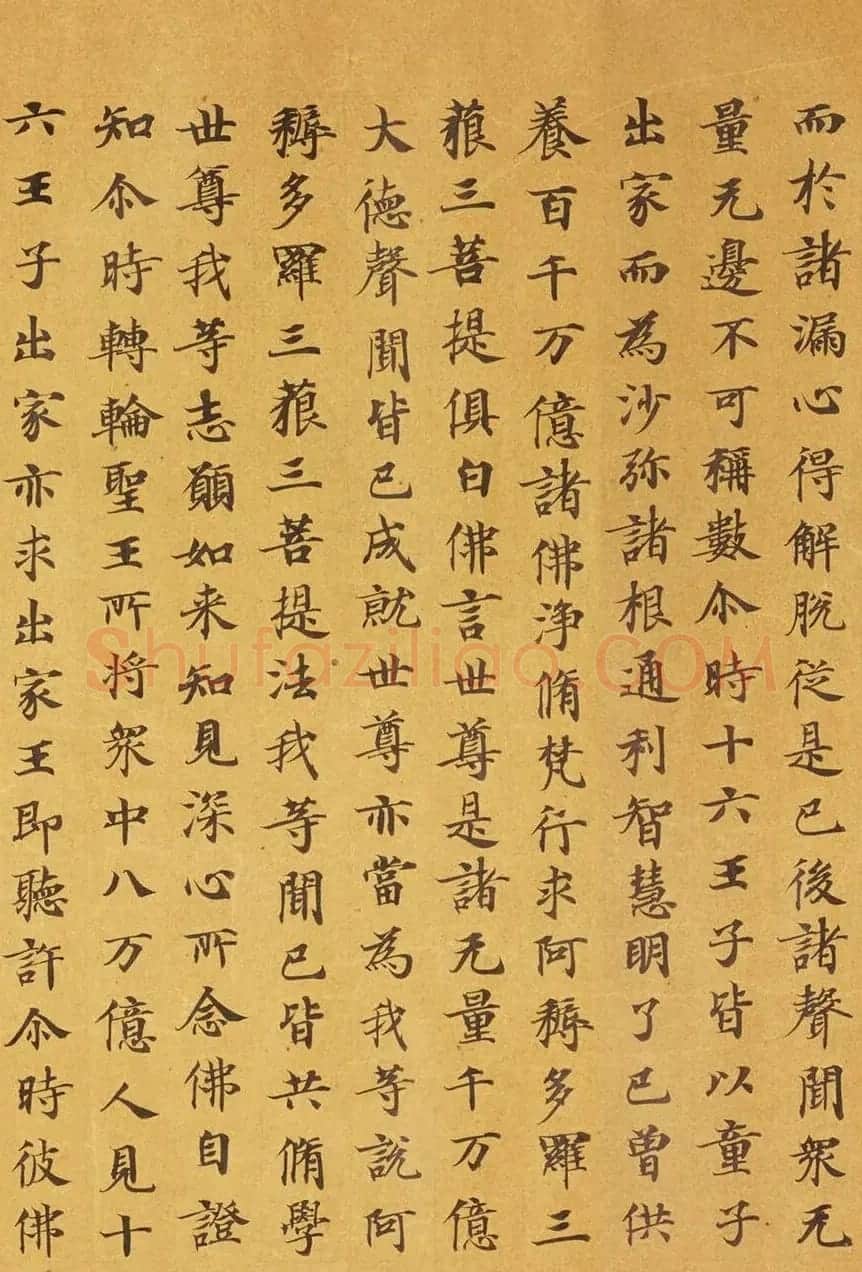 而於諸漏心得解脫從是已後諸聲聞衆无
量无邊不可稱數尒時十六王子皆以童子
出家而為沙弥諸根通利智慧明了已曾供
養百千万億諸佛淨脩梵行求阿耨多羅三
藐三菩提俱白佛言世尊是諸无量千万億
大德聲聞皆已成就世尊亦當為我等說阿
耨多羅三藐三菩提法我等聞已皆共脩學
世尊我等志願如来知見深心所念佛自證
知尒時轉輪聖王所將衆中八万億人見十
六王子出家亦求出家王即聽許尒時彼佛
Shufaziliao.COM